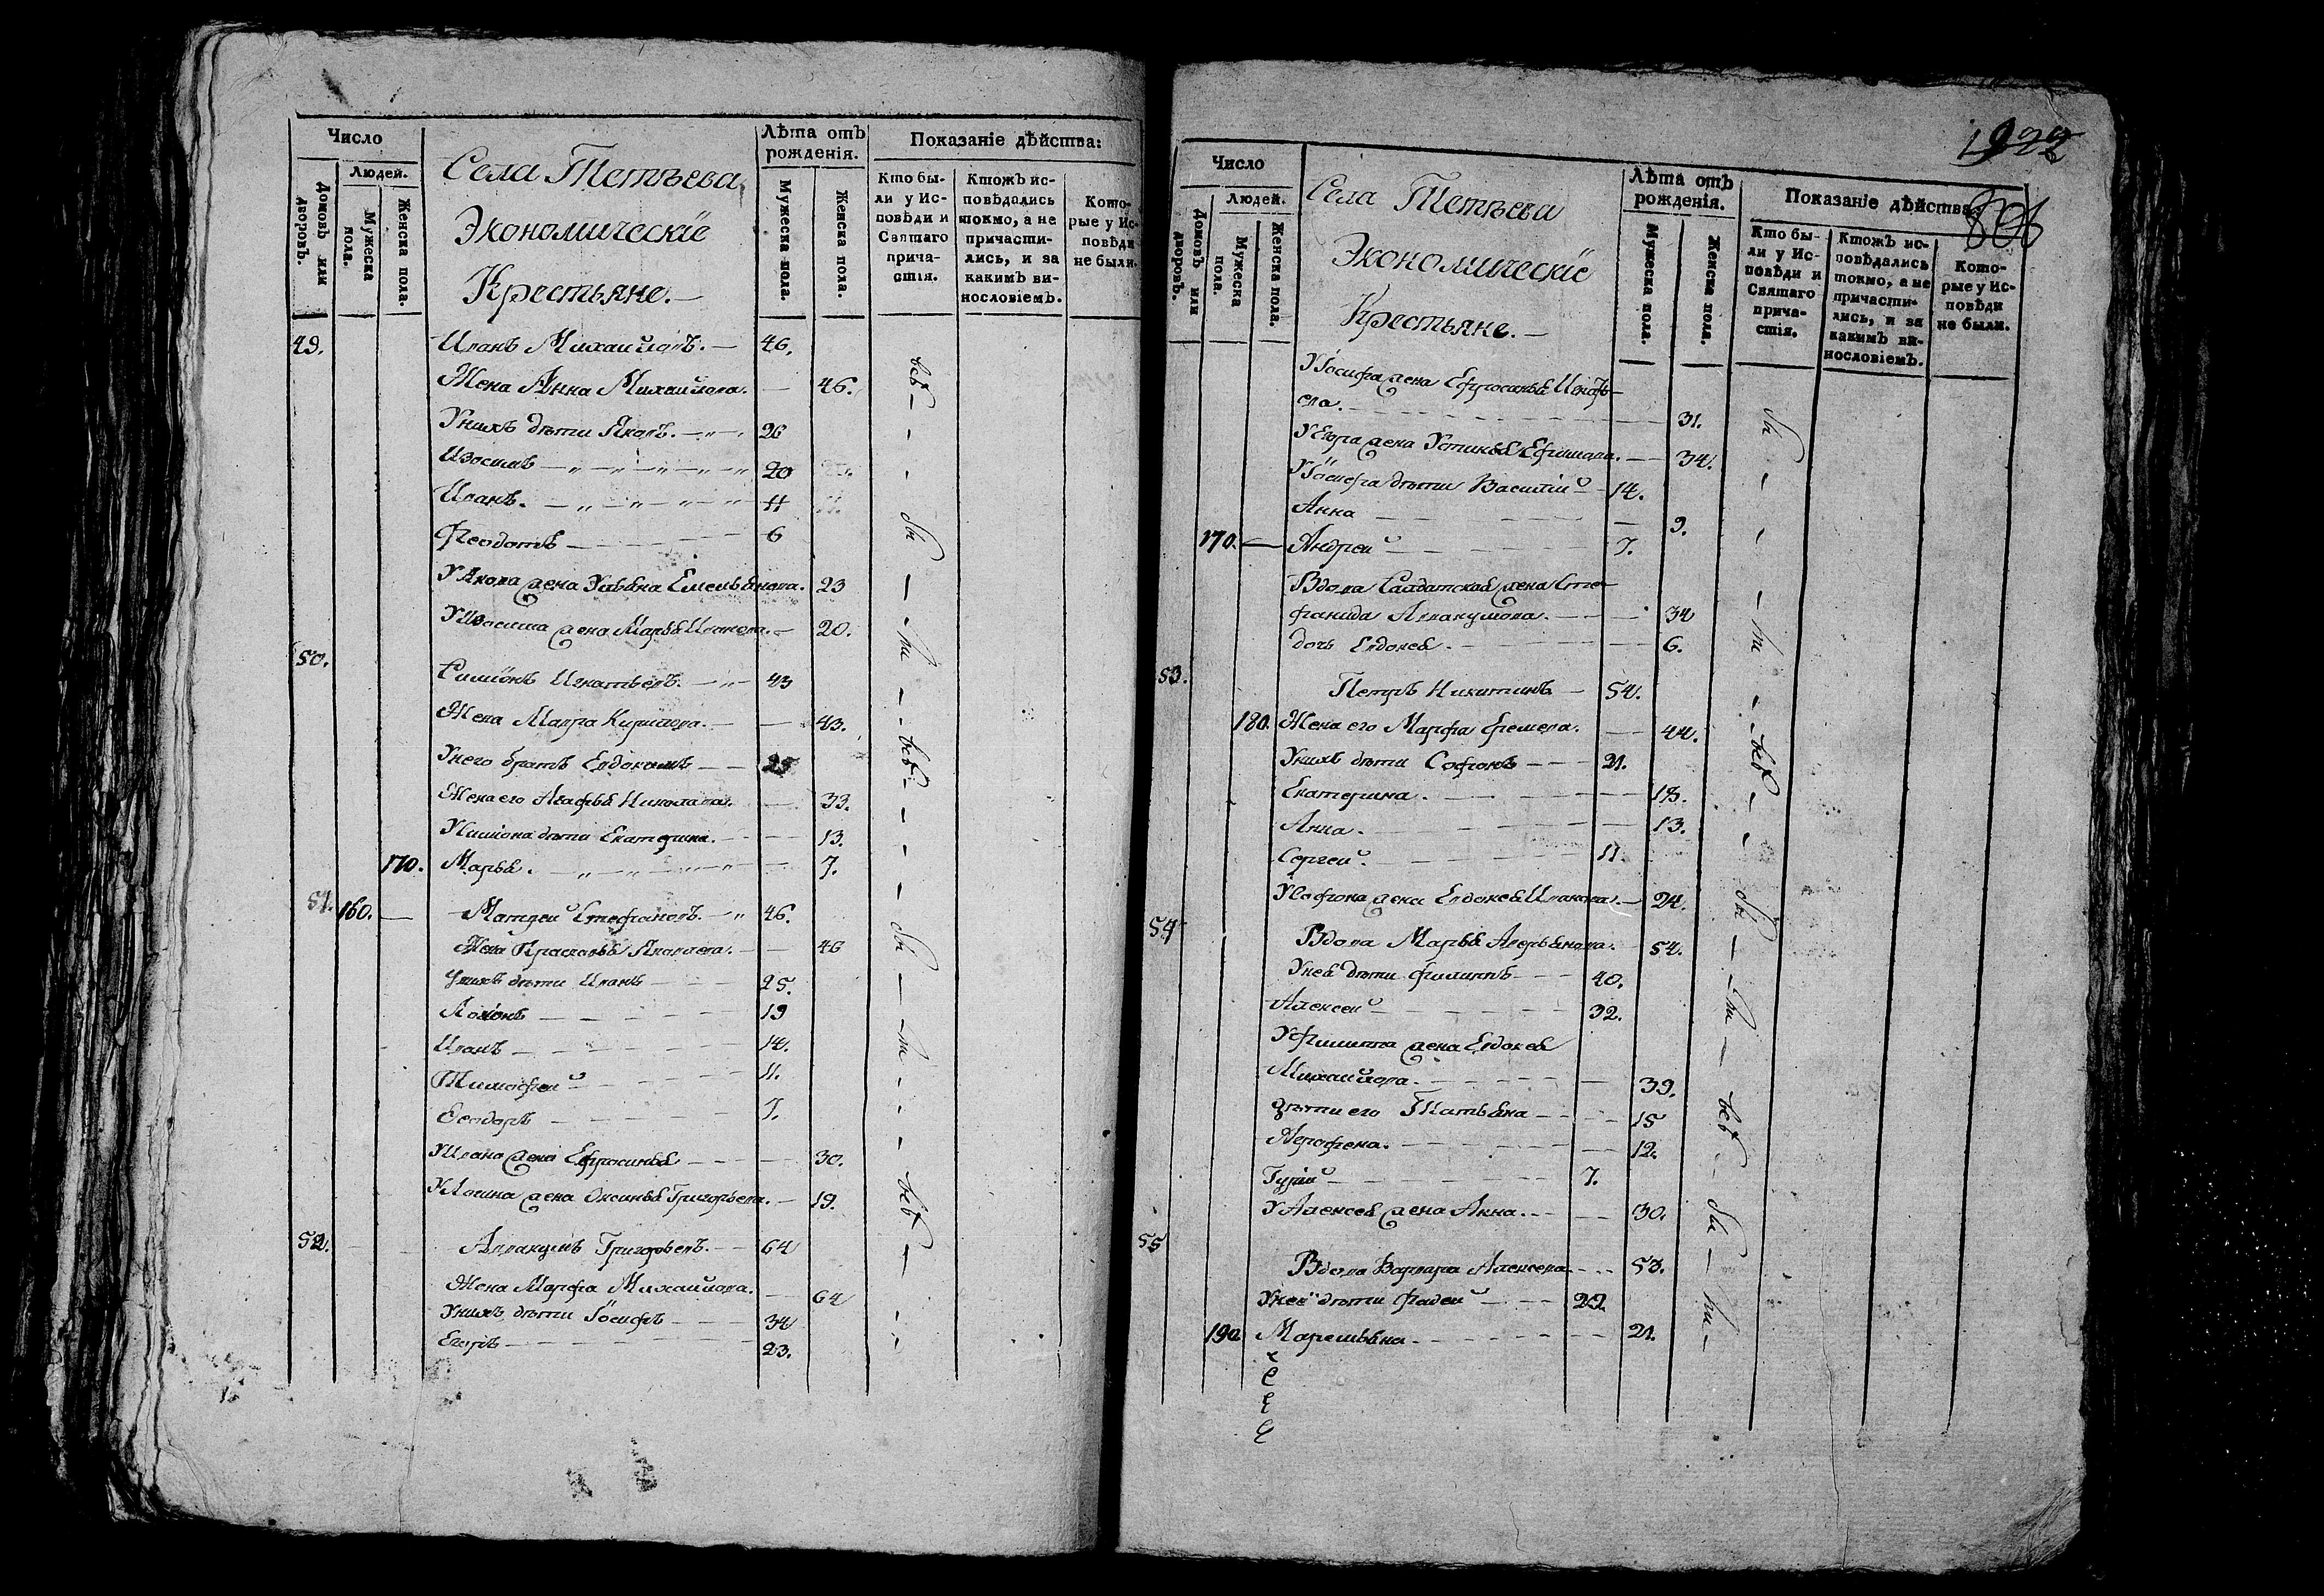 Число
Людей.
Домовъ или дворовъ.
Мужеска пола.
Женска пола.
Села Тетѣева
Экономическіе
Крестьяне.—
Лѣта отъ рожденія.
Мужеска пола.
Женска пола.
Показаніе дѣйства:
Кто бы-
ли у Ис-
повѣди и
Святаго
прича-
стія.
Ктожъ ис-
повѣдались
токмо, а не
причасти-
лись, и за
какимъ ви-
нословіемъ.
Кото-
рые у Ис-
повѣди
не были.
49. Иванъ Михайловъ. — 46.
Жена Анна Михайлова. — 46.
У нихъ дѣти Яковъ. — 26
Изосимъ — 20
Иванъ. — 11
Феодотъ — 6
У Якова жена Ульяна Емельянова. 23
У Изосима жена Марья Иванова. — 20.
50. Симіонъ Игнатьевъ. — 43
Жена Мавра Кирилова. — 43.
У него братъ Евдокимъ — 25
Жена его Агафья Николаева. 33.
У Симіона дѣти Екатерина. — 13.
170. Марья. — 7.
51. 160. — Матвей Стефановъ. — 46.
Жена Прасковья Яковлева. — 46
У нихъ дѣти Иванъ — 25.
Логинъ — 19
Иванъ — 14.
Тимофей — 11.
Феодоръ — 7.
У Ивана жена Ефросинья — 30.
У Логина жена Оксинья Григорьева. — 19.
52. Аввакумъ Григорьевъ. — 64
Жена Марфа Михайлова. — 64
У нихъ дѣти Іосифъ — 34
Егоръ — 23.
всѣ — бы — ли — всѣ — бы — ли — всѣ —
1922
808
Число
Людей.
Домовъ или дворовъ.
Мужеска пола.
Женска пола.
Села Тетѣева
Экономическіе
Крестьяне.—
Лѣта отъ рожденія.
Мужеска пола.
Женска пола.
Показаніе дѣйства
Кто бы-
ли у Ис-
повѣди и
Святаго
прича-
стія.
Ктожъ ис-
повѣдались
токмо, а не
причасти-
лись, и за
какимъ ви-
нословіемъ.
Кото-
рые у Ис-
повѣди
не были.
У Іосифа жена Ефросинья
31.
У Егора жена Устинья Ефимова. — 34.
У Іосифа дѣти Василій — 14.
Анна — 9.
170. — Андрей — 7.
Вдова Салдатская жена Сте-
фанида Аввакумова. — 34
дочь Евдокея. — 6.
53. Петръ Никитинъ — 54.
180. Жена его Марфа Еремеева. — 44.
У нихъ дѣти Софонъ — 21.
Екатерина. — 18.
Анна. — 13.
Сергей. — 11.
У Софона жена Евдокея Иванова. — 24.
54 Вдова Марья Аверьянова. — 54.
У нея дѣти Филиппъ — 40.
Алексей — 32.
У Филиппа жена Евдокея
Михайлова. — 39.
дѣти его Татьяна — 15
Аграфена. — 12.
Гурій — 7.
У Алексея жена Анна. — 30.
55 Вдова Варвара Алексеева. — 53.
У нея дѣти Фадей — 29.
190 Маремьяна — 21.
бы — ли — всѣ — бы — ли — всѣ — бы — ли —